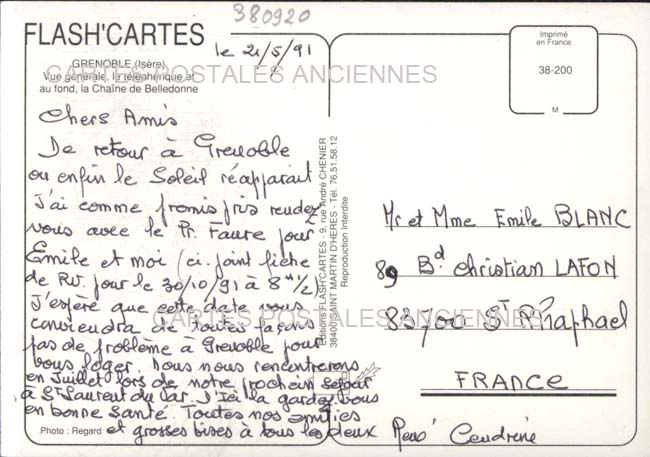 380920
FLASH'CARTES
le 21/5/91
GRENOBLE (Isère)
Vue générale, le téléphérique et
au fond, la Chaîne de Belledonne
CARTES POSTALES ANCIENNES
Chers Amis
De retour à Grenoble
ou enfin le Soleil réapparait
J'ai comme promis pris rendez
vous avec le Pr. Faure pour
Emile et moi (ci. joint fiche
de RV. pour le 30/10/91 à 8H 1/2)
J'espère que cette date vous
conviendra de toutes façons
pas de problème à Grenoble pour
vous loger. Nous nous rencontrerons
en Juillet lors de notre prochain séjour
à St Laurent du Var. J'Ici là gardez vous
en bonne santé. Toutes nos amitiés
et grosses bises à tous les deux
Cendrine
Photo : Regard
Editions FLASH'CARTES - 9, rue André CHENIER
38400 SAINT MARTIN D'HERES - Tél. 76.51.58.12
Reproduction Interdite
Imprimé
en France
38-200
M
Mr et Mme Emile BLANC
89 Bd Christian LAFON
83700 ST Raphael
FRANCE
CARTES POSTALES ANCIENNES